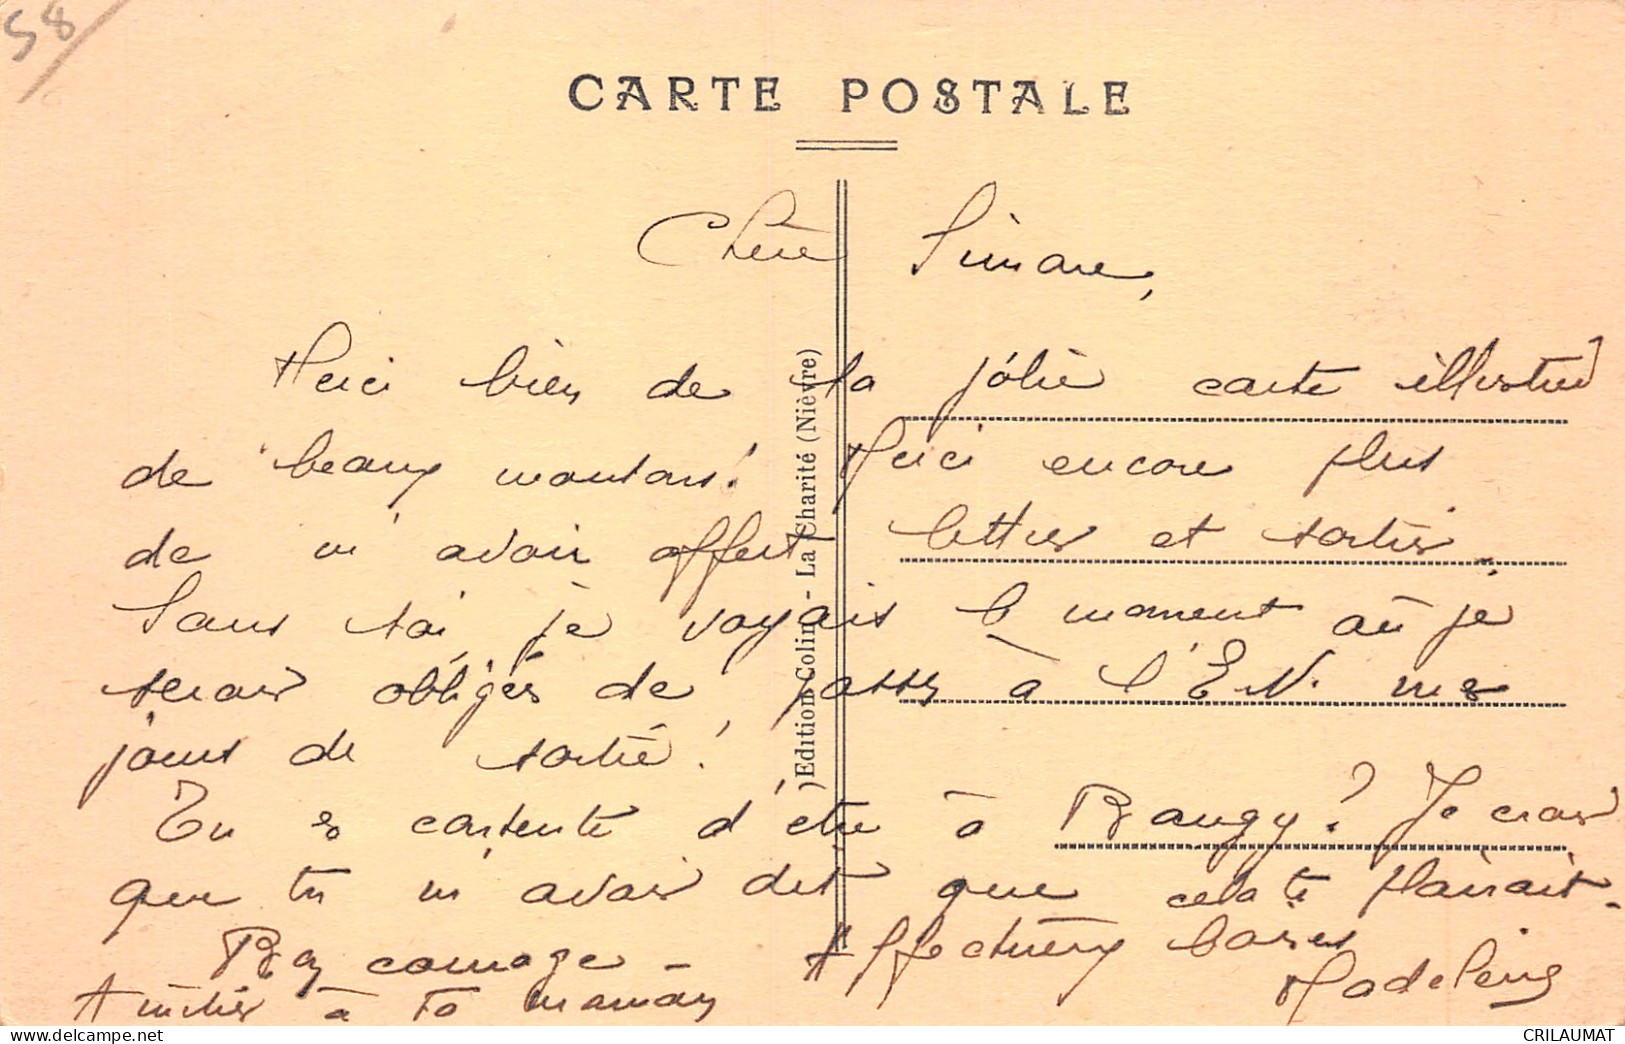 58
CARTE POSTALE
Chère Simone,
Merci bien de ta jolie carte illustrée
de beaux moutons! Merci encore plus
de m'avoir offert lettres et sorties.
Sans toi je voyais le moment où je
serais obligés de passer à l'E.N. mes
jours de sortie!
Tu es contente d'être à Raugy? Je crois
que tu m'avais dit que cela te plairait.
Bon courage - Affectueux baisers
Amitiés à ta maman Madeleine
Edition Colin - La Charité (Nièvre)
CRILAUMAT